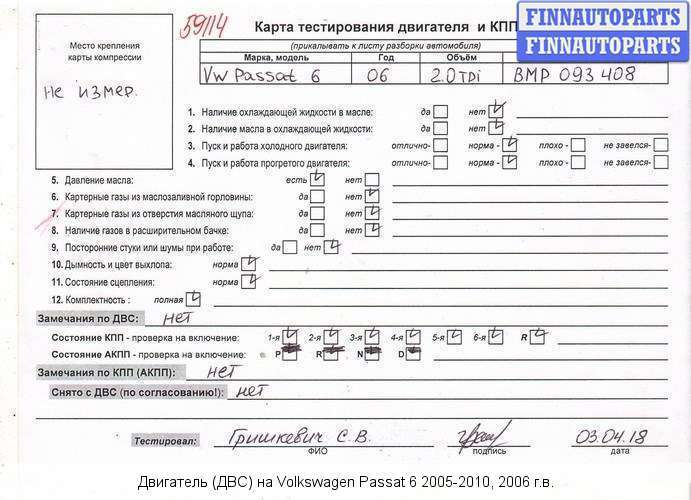 59114
Карта тестирования двигателя и КПП
FINNAUTOPARTS
FINNAUTOPARTS
(прикалывать к листу разборки автомобиля)
Место крепления
карты компрессии
не измер.
Марка, модель Год Объём
VW Passat 6 06 2.0 TDi BMP 093408
1. Наличие охлаждающей жидкости в масле: да нет
2. Наличие масла в охлаждающей жидкости: да нет
3. Пуск и работа холодного двигателя: отлично- норма - плохо - не завелся-
4. Пуск и работа прогретого двигателя: отлично- норма - плохо - не завелся-
5. Давление масла: есть нет
6. Картерные газы из маслозаливной горловины: да нет
7. Картерные газы из отверстия масляного щупа: да нет
8. Наличие газов в расширительном бачке: да нет
9. Посторонние стуки или шумы при работе: да нет
10. Дымность и цвет выхлопа: норма
11. Состояние сцепления: норма
12. Комплектность : полная
Замечания по ДВС: нет
Состояние КПП - проверка на включение: 1-я 2-я 3-я 4-я 5-я 6-я R
Состояние АКПП - проверка на включение: P R N D
Замечания по КПП (АКПП): нет
Снято с ДВС (по согласованию!): нет
Тестировал: Гришкевич С.В. 03.04.18
ФИО подпись дата
Двигатель (ДВС) на Volkswagen Passat 6 2005-2010, 2006 г.в.